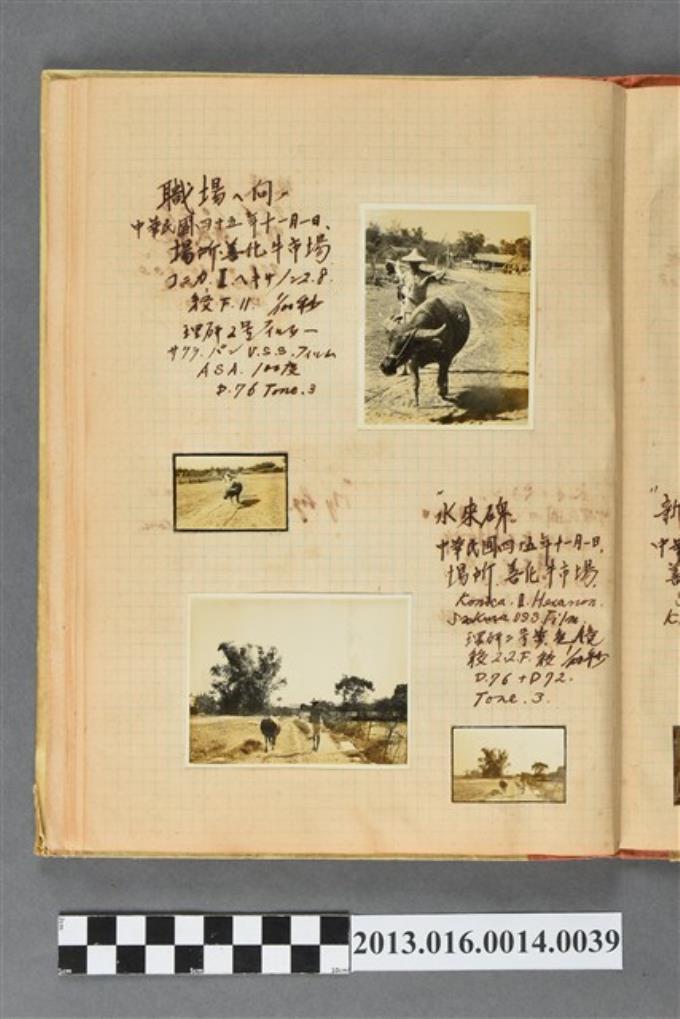 職場へ向フ
中華民國四十五年十一月一日、
場所、善化牛市場
コニカ.Ⅱヘキサノン2.8.
絞F.11. 1/100秒
理研2号フィルター
サクラ.パンU.S.S.フィルム
ASA. 100度
D.76 Tone.3
中華民國四十五年十一月一日.
場所.善化牛市場.
Konica.Ⅱ.Hexanon.
Sakura USS Film.
D.76+D72.
Tone.3.
"新
中華
善
K
2013.016.0014.0039